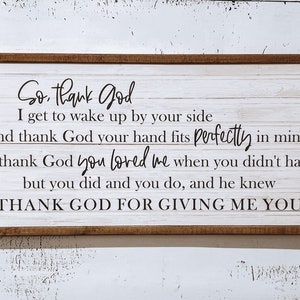 So, thank God
I get to wake up by your side
nd thank God your hand fits perfectly in min
thank God you loved me when you didn't ha
but you did and you do, and he knew
THANK GOD FOR GIVING ME YOU